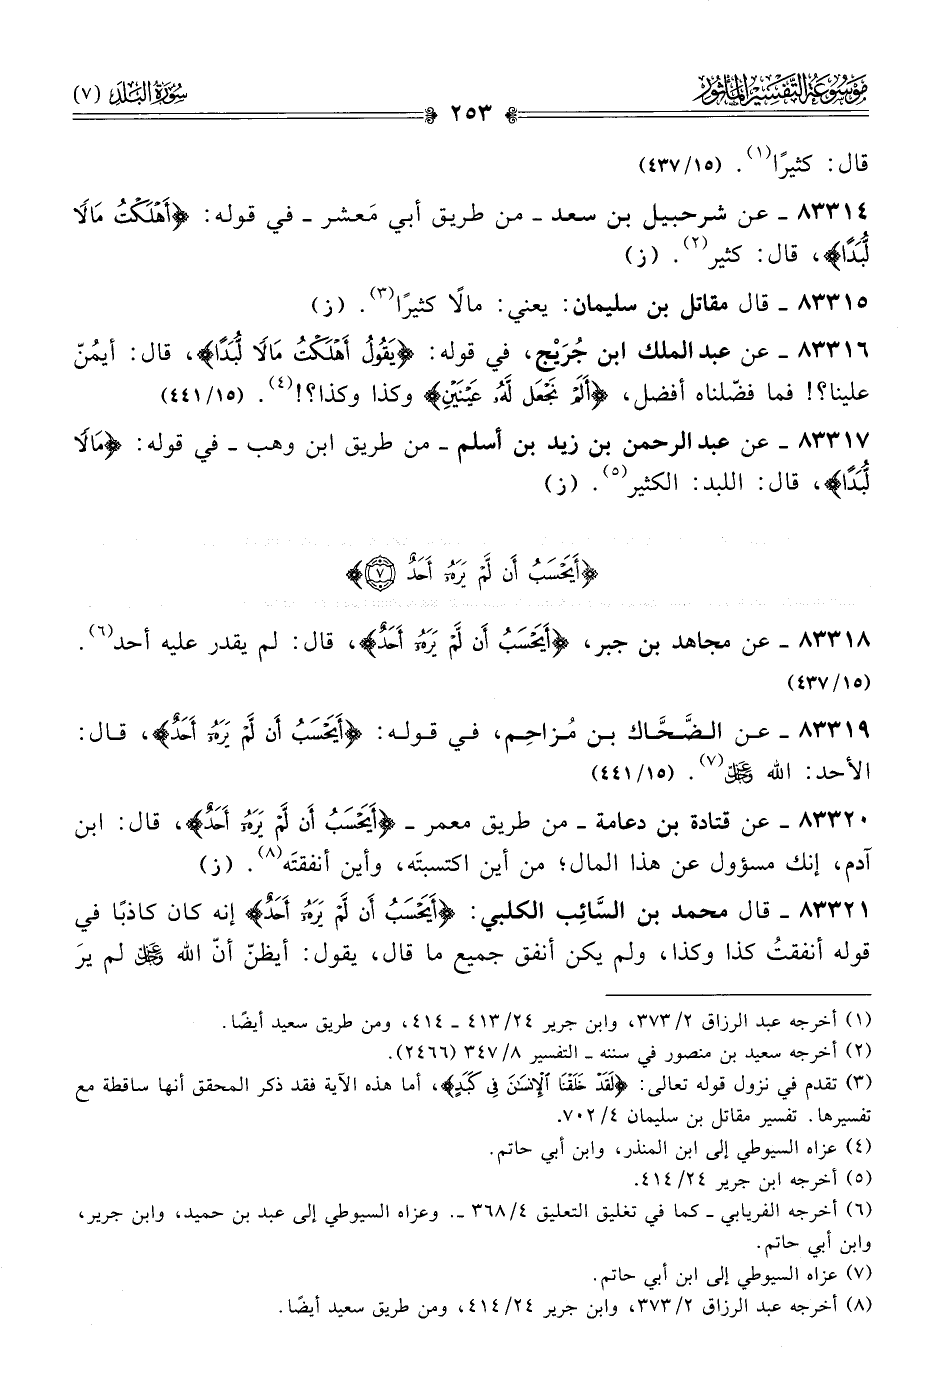 مَوْسُوعَة التَّفْسِيرِ المَأْثُور
سُورَةُ البَلَدِ (٧)
٢٥٣
قال: كثيرًا(١). (١٥/ ٤٣٧)
٨٣٣١٤ ـ عن شرحبيل بن سعد ـ من طريق أبي مَعشر ـ في قوله: ﴿أَهْلَكْتُ مَالًا
لُّبَدًا﴾، قال: كثير(٢). (ز)
٨٣٣١٥ ـ قال مقاتل بن سليمان: يعني: مالًا كثيرًا(٣). (ز)
٨٣٣١٦ ـ عن عبد الملك ابن جُرَيْج، في قوله: ﴿يَقُولُ أَهْلَكْتُ مَالًا لُّبَدًا﴾، قال: أيمُنّ
علينا؟! فما فضّلناه أفضل، ﴿أَلَمْ نَجْعَل لَّهُۥ عَيْنَيْنِ﴾ وكذا وكذا؟!(٤). (١٥/ ٤٤١)
٨٣٣١٧ ـ عن عبد الرحمن بن زيد بن أسلم ـ من طريق ابن وهب ـ في قوله: ﴿مَالًا
لُّبَدًا﴾، قال: اللبد: الكثير(٥). (ز)
﴿أَيَحْسَبُ أَن لَّمْ يَرَهُۥٓ أَحَدٌ ٧﴾
٨٣٣١٨ ـ عن مجاهد بن جبر، ﴿أَيَحْسَبُ أَن لَّمْ يَرَهُۥٓ أَحَدٌ﴾، قال: لم يقدر عليه أحد(٦).
(١٥/ ٤٣٧)
٨٣٣١٩ ـ عن الضَّحَّاك بن مُزاحِم، في قوله: ﴿أَيَحْسَبُ أَن لَّمْ يَرَهُۥٓ أَحَدٌ﴾، قال:
الأحد: الله ﷿(٧). (١٥/ ٤٤١)
٨٣٣٢٠ ـ عن قتادة بن دعامة ـ من طريق معمر ـ ﴿أَيَحْسَبُ أَن لَّمْ يَرَهُۥٓ أَحَدٌ﴾، قال: ابن
آدم، إنك مسؤول عن هذا المال؛ من أين اكتسبتَه، وأين أنفقتَه(٨). (ز)
٨٣٣٢١ ـ قال محمد بن السَّائِب الكلبي: ﴿أَيَحْسَبُ أَن لَّمْ يَرَهُۥٓ أَحَدٌ﴾ إنه كان كاذبًا في
قوله أنفقتُ كذا وكذا، ولم يكن أنفق جميع ما قال، يقول: أيظنّ أنّ الله ﷿ لم يرَ
(١) أخرجه عبد الرزاق ٢/ ٣٧٣، وابن جرير ٢٤/ ٤١٣ ـ ٤١٤، ومن طريق سعيد أيضًا.
(٢) أخرجه سعيد بن منصور في سننه ـ التفسير ٨/ ٣٤٧ (٢٤٦٦).
(٣) تقدم في نزول قوله تعالى: ﴿لَقَدْ خَلَقْنَا ٱلْإِنسَٰنَ فِى كَبَدٍ﴾، أما هذه الآية فقد ذكر المحقق أنها ساقطة مع
تفسيرها. تفسير مقاتل بن سليمان ٤/ ٧٠٢.
(٤) عزاه السيوطي إلى ابن المنذر، وابن أبي حاتم.
(٥) أخرجه ابن جرير ٢٤/ ٤١٤.
(٦) أخرجه الفريابي ـ كما في تغليق التعليق ٤/ ٣٦٨ ـ. وعزاه السيوطي إلى عبد بن حميد، وابن جرير،
وابن أبي حاتم.
(٧) عزاه السيوطي إلى ابن أبي حاتم.
(٨) أخرجه عبد الرزاق ٢/ ٣٧٣، وابن جرير ٢٤/ ٤١٤، ومن طريق سعيد أيضًا.